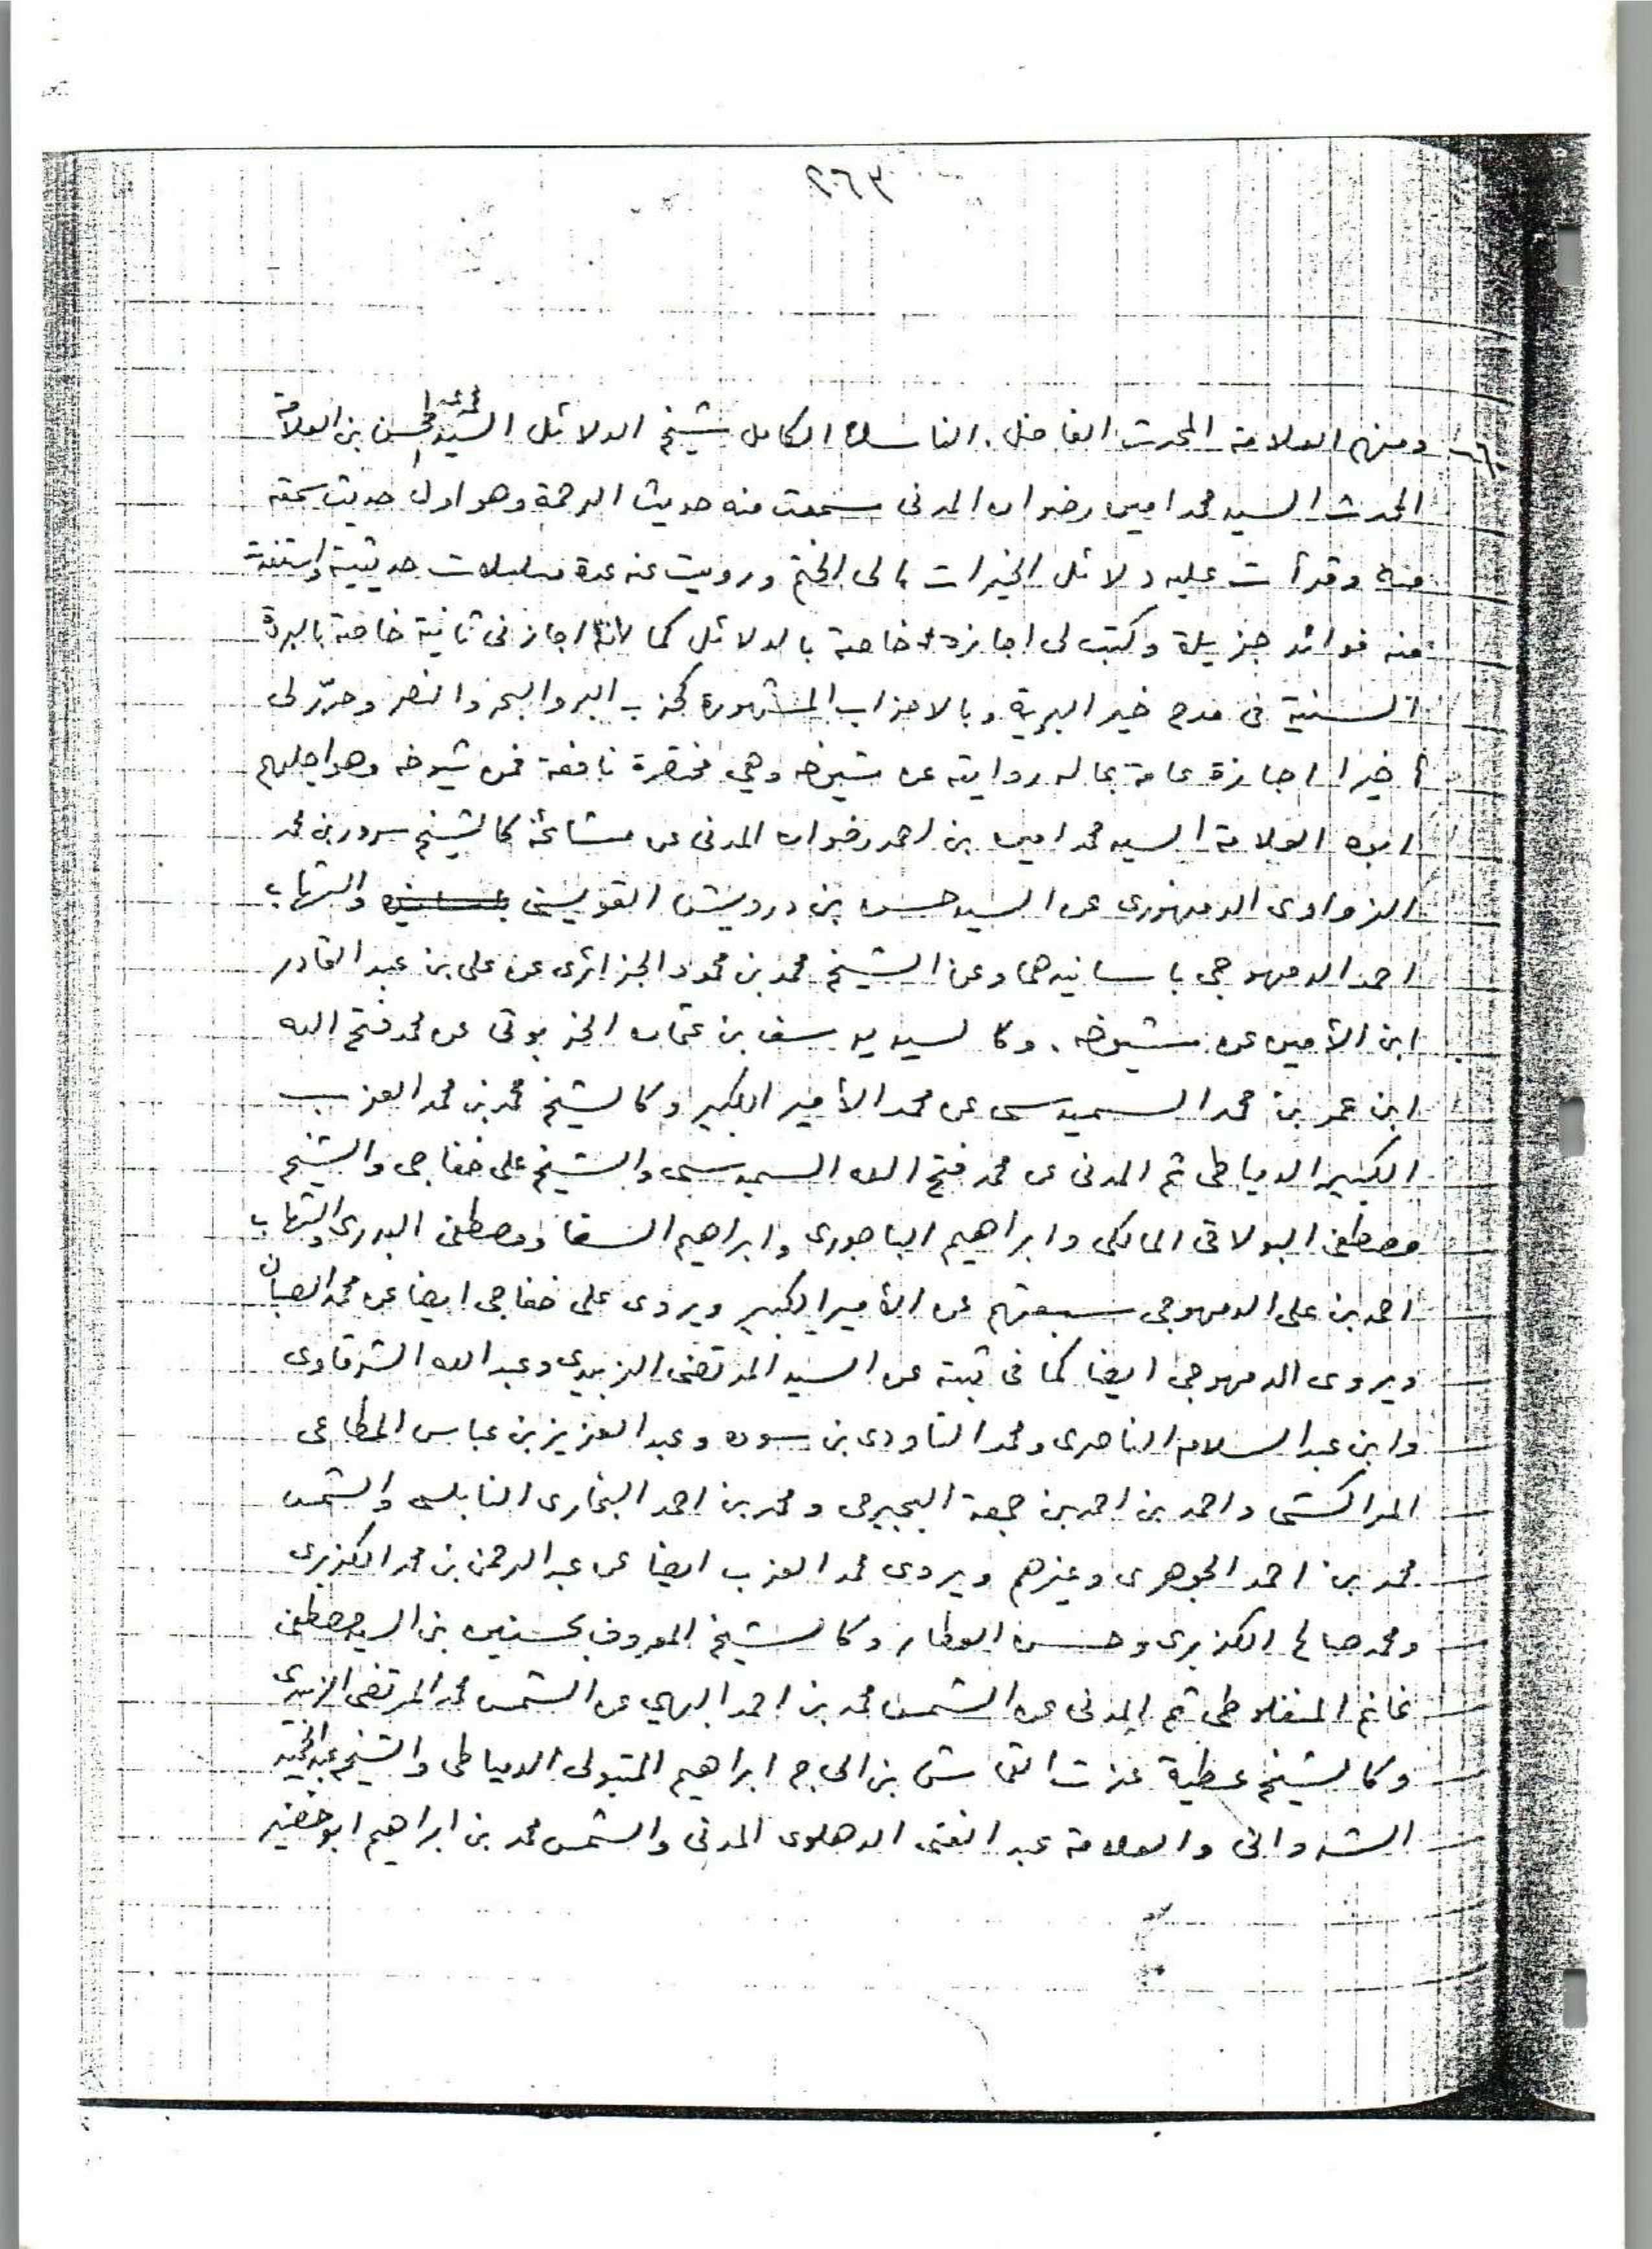 ٢٦٣
ومنهم العلامة المحدث الفاضل. الناسك الكامل شيخ الدلائل السيد محمد عبد المحسن بن العلامة
المحدث السيد محمد امين رضوان المدنى سمعت منه حديث الرحمة وهو اول حديث سمعته
منه وقرأت عليه دلائل الخيرات الى الختم ورويت عنه عدة مسلسلات حديثية واستفدت
منه فوائد جزيلة وكتب لى اجازة خاصة بالدلائل كما انه اجازنى ثانية خاصة بالبردة
السنية فى مدح خير البرية وبالاحزاب المشهورة كحزب البر والبحر والنصر وحرّر لى
أخيرا اجازة عامة بما له روايته عن شيوخه وهي مختصرة نافعة فمن شيوخه وهو اجلهم
ابوه العلامة السيد محمد امين بن احمد رضوان المدنى عن مشائخه كالشيخ سرور بن محمد
الزواوى الدمنهورى عن السيد حسن بن درويش القويسنى والشهاب
احمد الدمهوجى باسانيدهما وعن الشيخ محمد بن محمود الجزائرى عن على بن عبد القادر
ابن الأمين عن شيوخه. وكالسيد يوسف بن عثمان الخربوتى عن محمد فتح الله
ابن عمر بن محمد السميدسى عن محمد الأمير الكبير وكالشيخ محمد بن محمد العزب
الكبير الدمياطى ثم المدنى عن محمد فتح الله السميدسى والشيخ على خفاجى والشيخ
مصطفى البولاقى المالكى وابراهيم الباجورى وابراهيم السقا ومصطفى البدرى والشهاب
احمد بن على الدمهوجى سبعتهم عن الأمير الكبير ويروى على خفاجى ايضا عن محمد الصبان
ويروى الدمهوجى ايضا كما فى ثبته عن السيد المرتضى الزبيدي وعبد الله الشرقاوى
وابن عبد السلام الناصرى ومحمد التاودى بن سوده وعبد العزيز بن عباس المطاعى
المراكشى واحمد بن احمد بن جمعة البجيرمى ومحمد بن احمد البخارى النابلسى والشمس
محمد بن احمد الجوهرى وغيرهم ويروى محمد العزب ايضا عن عبد الرحمن بن محمد الكزبرى
ومحمد صالح الكزبرى وحسن العطار وكالشيخ المعروف بحسنين بن السيد مصطفى
غانم المنفلوطى ثم المدنى عن الشمس محمد بن احمد البهي عن الشمس محمد المرتضى الزبيدى
وكالشيخ عطية عزت القماش بن الحاج ابراهيم المتبولى الدمياطى والشيخ عبد الحميد
الشروانى والعلامة عبد الغنى الدهلوى المدنى والشمس محمد بن ابراهيم ابو خضير